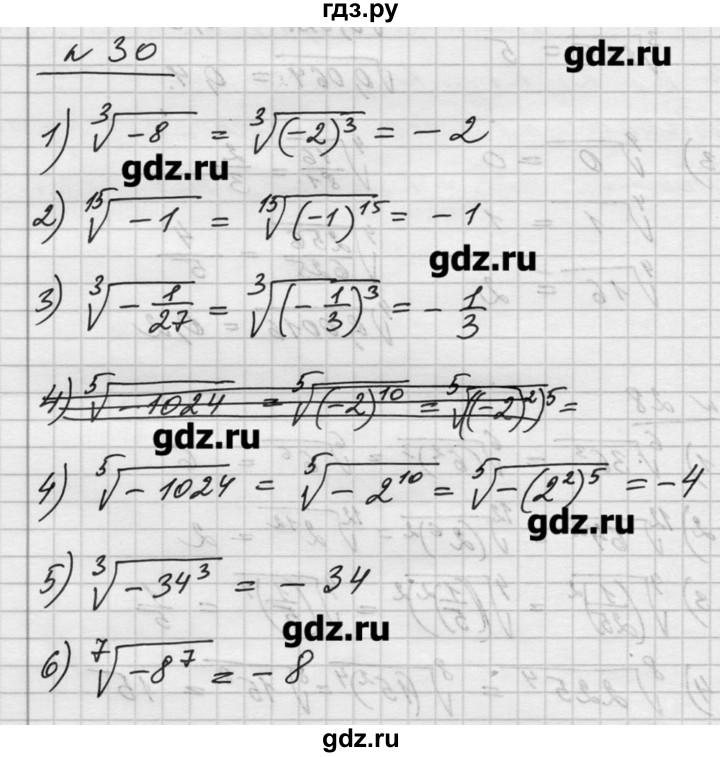 гдз.ру
№ 30
gdz.ru
1) ∛(-8) = ∛((-2)³) = -2
gdz.ru
2) ¹⁵√(-1) = ¹⁵√((-1)¹⁵) = -1
gdz.ru
3) ∛(-1/27) = ∛((-1/3)³) = -1/3
4) ⁵√(-1024) = ⁵√((-2)¹⁰) = ⁵√((-2)²)⁵ =
gdz.ru
4) ⁵√(-1024) = ⁵√(-2¹⁰) = ⁵√(-(2²)⁵) = -4
gdz.ru
5) ∛(-34³) = -34
gdz.ru
6) ⁷√(-8⁷) = -8
gdz.ru